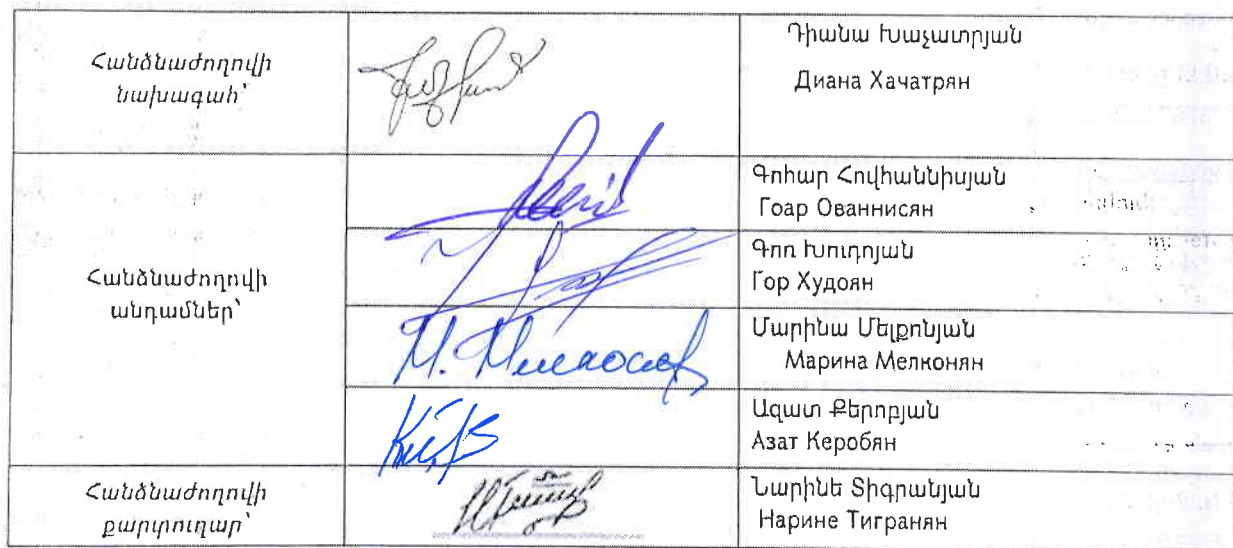 Հանձնաժողովի
նախագահ՝
Դիանա Խաչատրյան
Диана Хачатрян
Հանձնաժողովի
անդամներ՝
Գոհար Հովհաննիսյան
Гоар Ованнисян
Գոռ Խուդոյան
Гор Худоян
М.
Մարինա Մելքոնյան
Марина Мелконян
Ազատ Քերոբյան
Азат Керобян
Հանձնաժողովի
քարտուղար՝
Նարինե Տիգրանյան
Нарине Тигранян